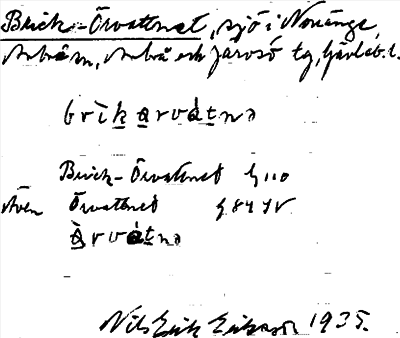 Brick-Örvattnet, sjö i Norrånge,
Arbrå sn, Arbrå och Järvsö tg, Gävleb. l.
brìkạrvátnə
Brick-Örvattnet G 110
Även Örvattnet G 84 SV
ạ̀rvátnə
Nils Erik Eriksson 1935.